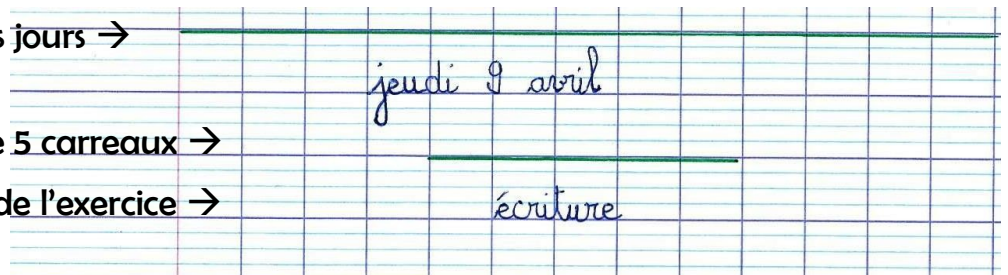 s jours →
jeudi 9 avril
e 5 carreaux →
de l'exercice → écriture